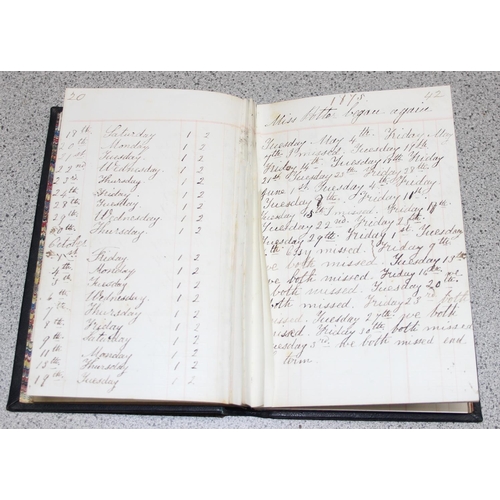 20
18th Saturday 1 2
Monday 1 2
21st Tuesday 1 2
22nd Wednesday 1 2
Thursday 1 2
24th Friday 1 2
28th Tuesday 1 2
29th Wednesday 1 2
30th Thursday 1 2
October
1st Friday 1 2
4th Monday 1 2
5 Tuesday 1 2
6th Wednesday 1 2
7th Thursday 1 2
8th Friday 1 2
9th Saturday 1 2
11th Monday 1 2
Thursday 1 2
19th Tuesday 1 2
42
Miss began again
Tuesday May 4th Friday May
Tuesday 11th
Friday 14th Tuesday 18th Friday
21st Tuesday 25th Friday 28th
June 1st Tuesday 4th Friday
Tuesday 8th Friday 11th
Tuesday 15th missed. Friday 18th
Tuesday 22nd Friday 25th
Tuesday 29th Friday 1st Tuesday
missed Friday 9th
we both missed. Tuesday 13th
we both missed Friday 16th we
both missed Tuesday 20th we
both missed. Friday 23rd both
missed. Tuesday 27th we both
missed. Friday 30th both missed
Tuesday 3rd we both missed end
term